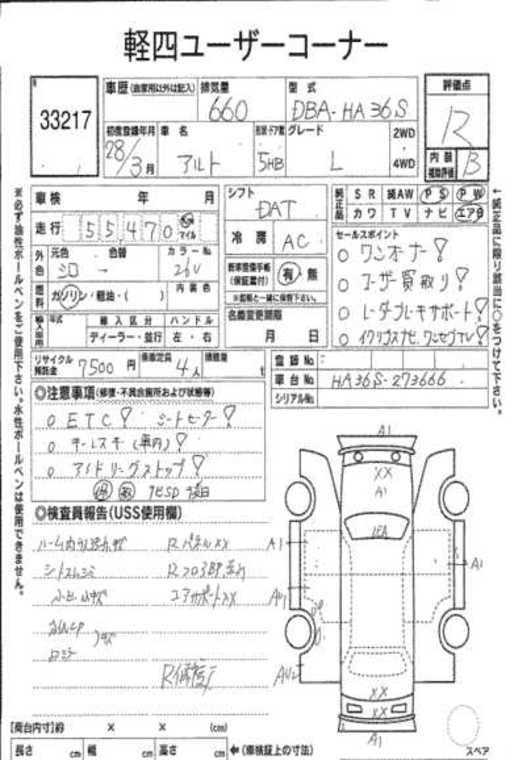 軽四ユーザーコーナー
33217
車歴(自家用以外は記入)
排気量
660
型式
DBA-HA36S
評価点
R
初度登録年月
28/3月
車名
アルト
形状・ドア数
5HB
グレード
L
2WD
4WD
内装
補助評価
B
車検 年 月
シフト
DAT
純正品
SR 純AW PS PW
カワ TV ナビ エアB
走行
55,470
マイル
冷房
AC
セールスポイント
○ワンオーナー!
○ユーザー買取り!
○レーダーブレーキサポート!
○イクリプスナビ、ワンセグTV!
外色
元色
シロ
色替
-
カラーNo
26U
新車整備手帳
(保証書付)
有・無
※書類と一緒に保管下さい。
燃料
ガソリン・軽油・( )
内装色
名義変更期限
月 日
輸入車用
年式
輸入区分
ハンドル
ディーラー・並行
左・右
リサイクル
預託金
7500円
乗車定員
4人
積載量
t
登録No
車台No
HA36S-273666
シリアルNo
◎注意事項(修復・不具合箇所および状態等)
○ETC! シートヒーター!
○キーレスキー(車内)!
○アイドリングストップ!
◎検査員報告(USS使用欄)
Rパネルxx
エアサポートxx
R修復
A1
XX
A1
A1
A1
XX
XX
A1
スペア
[荷台内寸]約 × × (cm)
長さ cm 幅 cm 高さ cm
←(車検証上の寸法)
※必ず油性ボールペンをご使用下さい。水性ボールペンは使用できません。
←純正品に限り該当に○をつけて下さい。